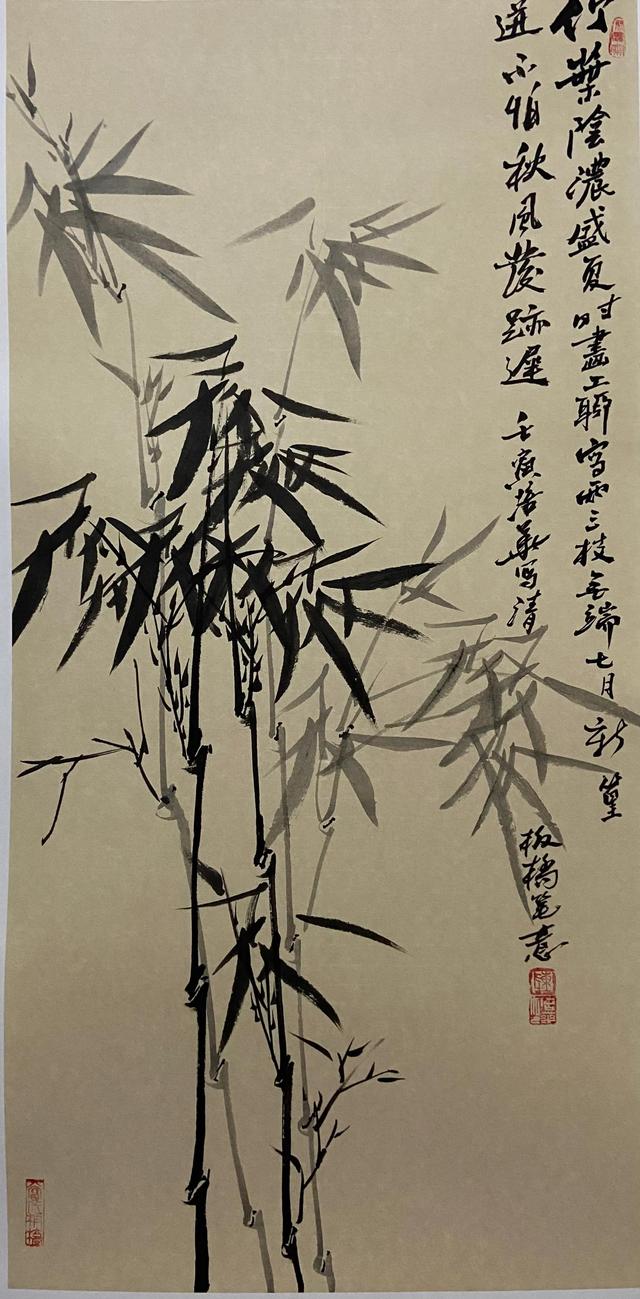 竹葉陰濃盛夏時畫工聊寫兩三枝無端七月新篁
迸不怕秋風發跡遲
壬寅培華写清
板橋笔意